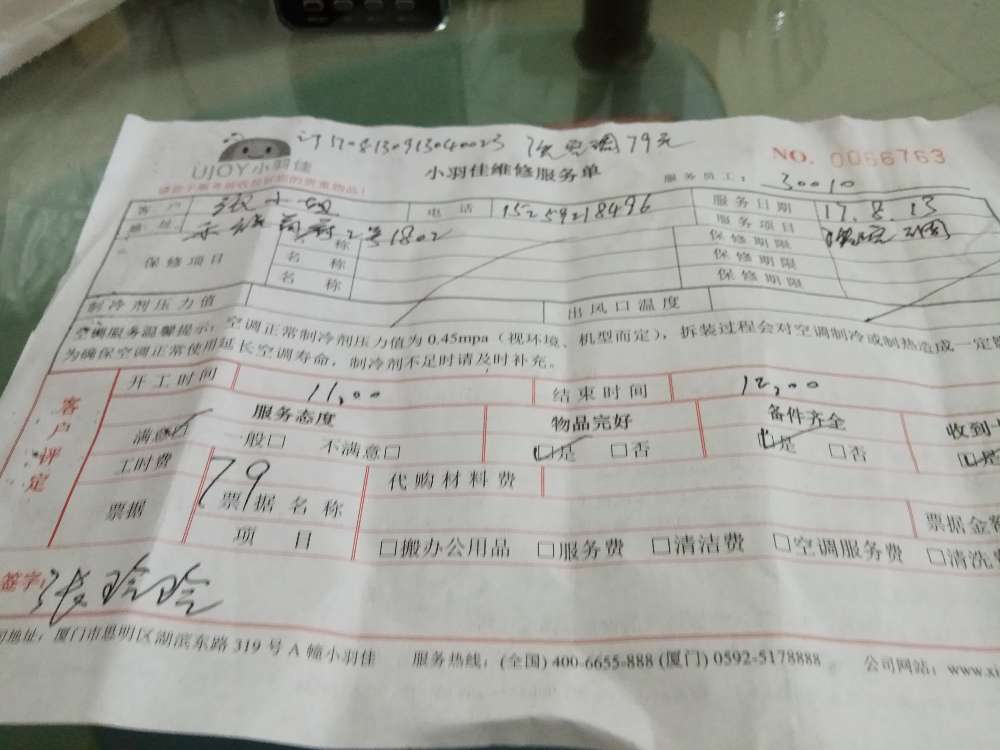 79元
NO. 0066763
UJOY小羽佳
小羽佳维修服务单
服务员工: 30010
请您于服务前收检好您的贵重物品!
客户 张小姐 电话 15259218496 服务日期 17.8.13
地址 2号1802 名称 服务项目
保修项目 名称 保修期限
名称 保修期限
保修期限
制冷剂压力值 出风口温度
空调服务温馨提示: 空调正常制冷剂压力值为0.45mpa (视环境、机型而定), 拆装过程会对空调制冷或制热造成一定
为确保空调正常使用延长空调寿命, 制冷剂不足时请及时补充。
开工时间 11,00 结束时间 12,00
客户评定 服务态度 物品完好 备件齐全 收到
满意□ 一般□ 不满意□ □是 □否 □是 □否 □是
工时费 79 代购材料费
票据 票据名称 票据金
项目 □搬办公用品 □服务费 □清洁费 □空调服务费 □清洗
签字: 张玲玲
地址: 厦门市思明区湖滨东路 319 号 A 幢小羽佳 服务热线: (全国) 400-6655-888 (厦门) 0592-5178888 公司网站: www.xi